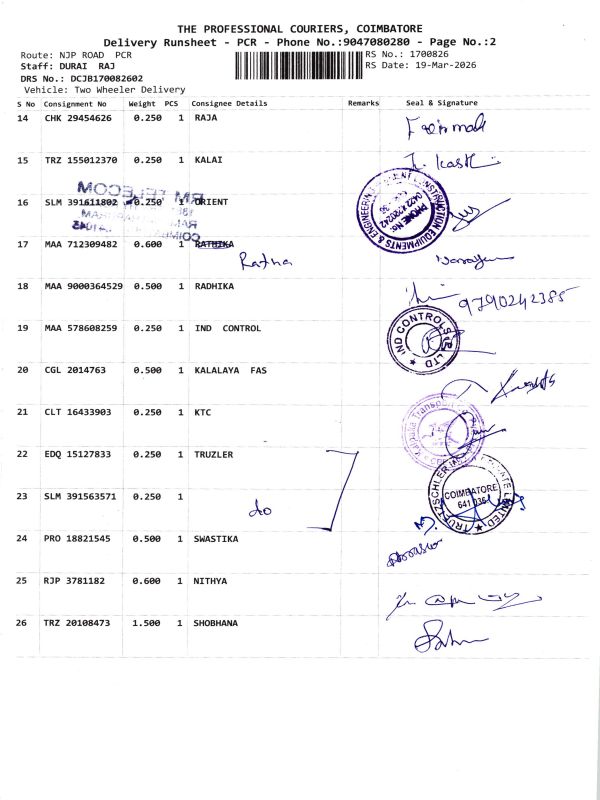 THE PROFESSIONAL COURIERS, COIMBATORE
Delivery Runsheet - PCR - Phone No.:9047080280 - Page No.:2
Route: NJP ROAD PCR
RS No.: 1700826
Staff: DURAI RAJ
RS Date: 19-Mar-2026
DRS No.: DCJB170082602
Vehicle: Two Wheeler Delivery
S No Consignment No Weight PCS Consignee Details Remarks Seal & Signature
14 CHK 29454626 0.250 1 RAJA
15 TRZ 155012370 0.250 1 KALAI
16 SLM 391611802 0.250 1 ORIENT
PHONE No: 0422 4220242
17 MAA 712309482 0.600 1 RATHIKA
Ratna
18 MAA 9000364529 0.500 1 RADHIKA
9790242385
19 MAA 578608259 0.250 1 IND CONTROL
IND CONTROLS (P) LTD
20 CGL 2014763 0.500 1 KALALAYA FAS
21 CLT 16433903 0.250 1 KTC
22 EDQ 15127833 0.250 1 TRUZLER
COIMBATORE
23 SLM 391563571 0.250 1
do
24 PRO 18821545 0.500 1 SWASTIKA
25 RJP 3781182 0.600 1 NITHYA
26 TRZ 20108473 1.500 1 SHOBHANA